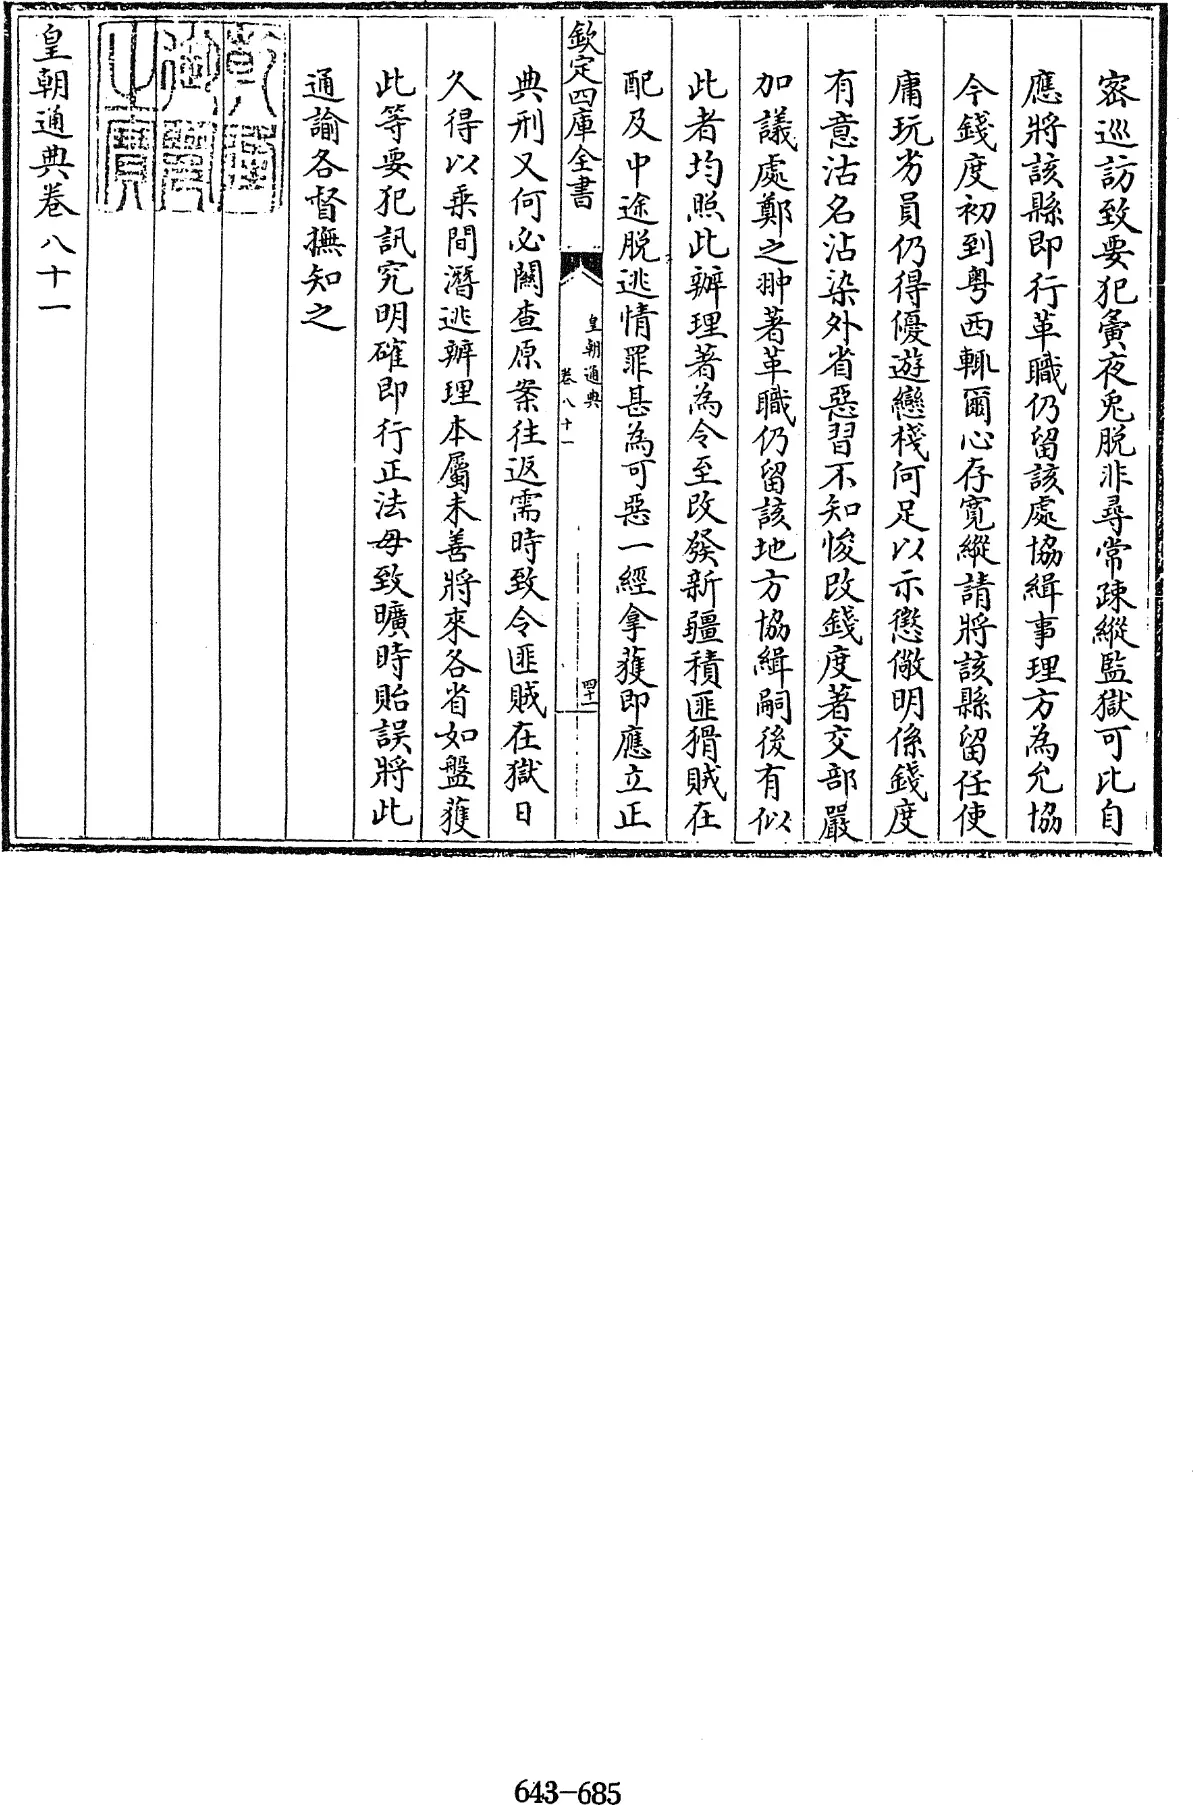 密巡訪致要犯夤夜兎脱非尋常疎縱監獄可比自
應將該縣即行革職仍留該處協緝事理方為允協
今錢度初到粵西輒爾心存寛縱請將該縣留任使
庸玩劣員仍得優遊戀棧何足以示懲儆明係錢度
有意沽名沾染外省惡習不知悛改錢度著交部嚴
加議處鄭之翀著革職仍留該地方協緝嗣後有似
此者均照此辦理著為令至改發新疆積匪猾賊在
配及中途脱逃情罪甚為可惡一經拿獲即應立正
欽定四庫全書
皇朝通典
卷八十一
四十二
典刑又何必關查原案往返需時致令匪賊在獄日
久得以乗間潛逃辦理本屬未善將來各省如盤獲
此等要犯訊究明確即行正法毋致曠時貽誤將此
通諭各督撫知之
皇朝通典卷八十一
643-685